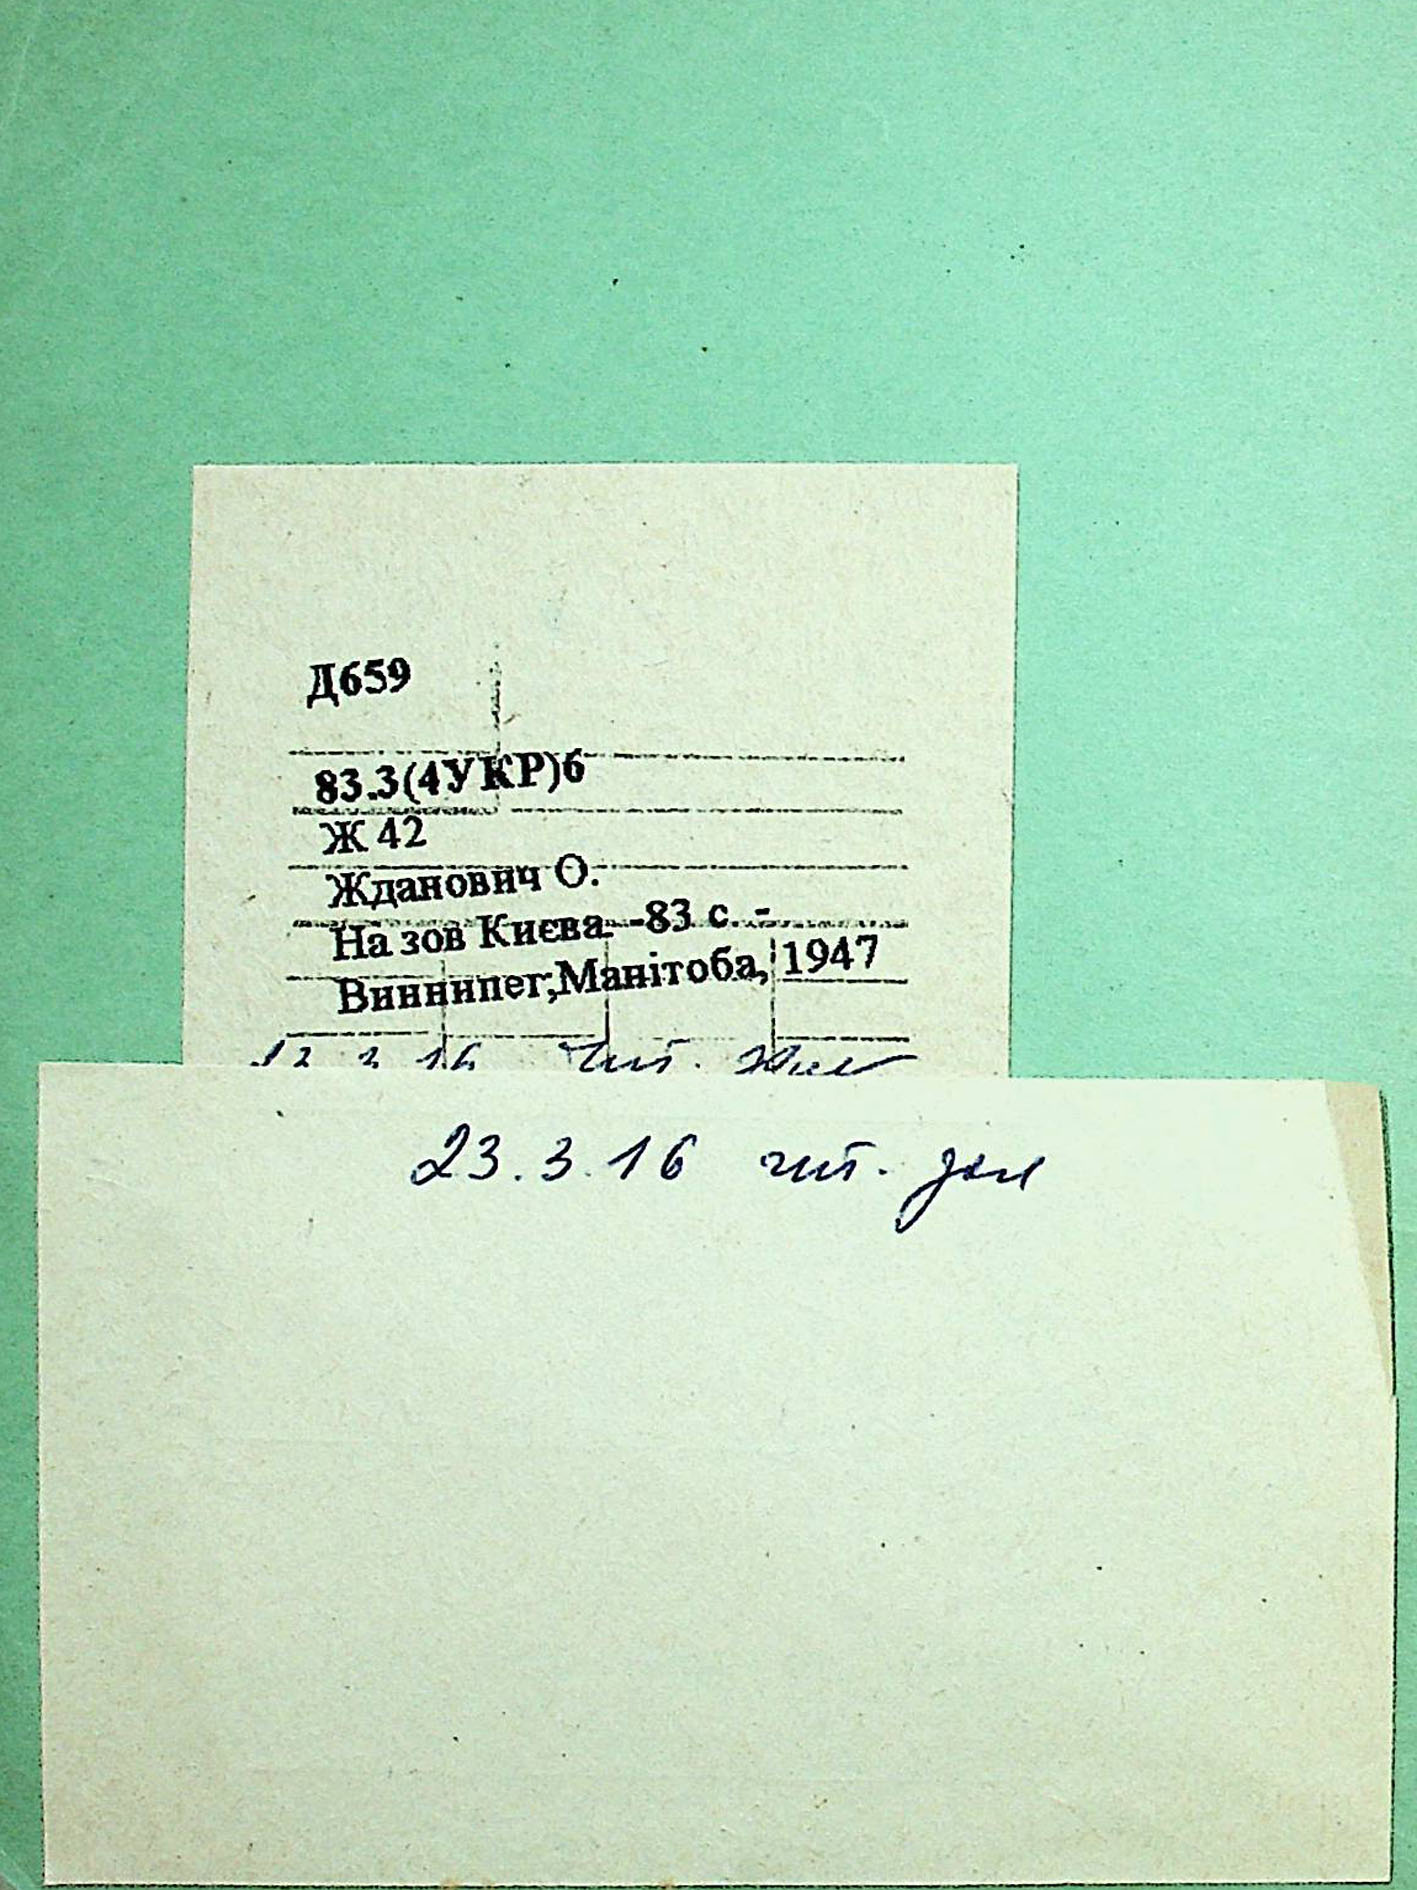 Д659
83.3(4УКР)6
Ж 42
Жданович О.
На зов Києва. -83 с. -
Виннипег,Манітоба, 1947
12 3 16 чит. зал
23.3.16 чит. зал